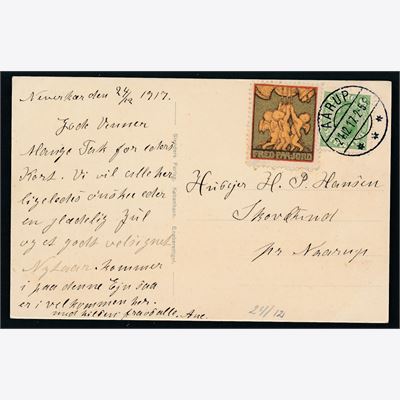 Neverkær den 24/12 1917.
Gode Venner
Mange Tak for eders
Kort. Vi vil alle her
ligeledes ønske eder
en glædelig Jul
og et godt velsignet
Nytaar. kommer
i paa denne Egn saa
er i velkommen her.
med hilsen fra alle. Ane.
FRED PAA JORD
AARUP
24.12.17. 2-5E
Husejer H. P. Hansen
Skovlund
pr Naarup
24/12